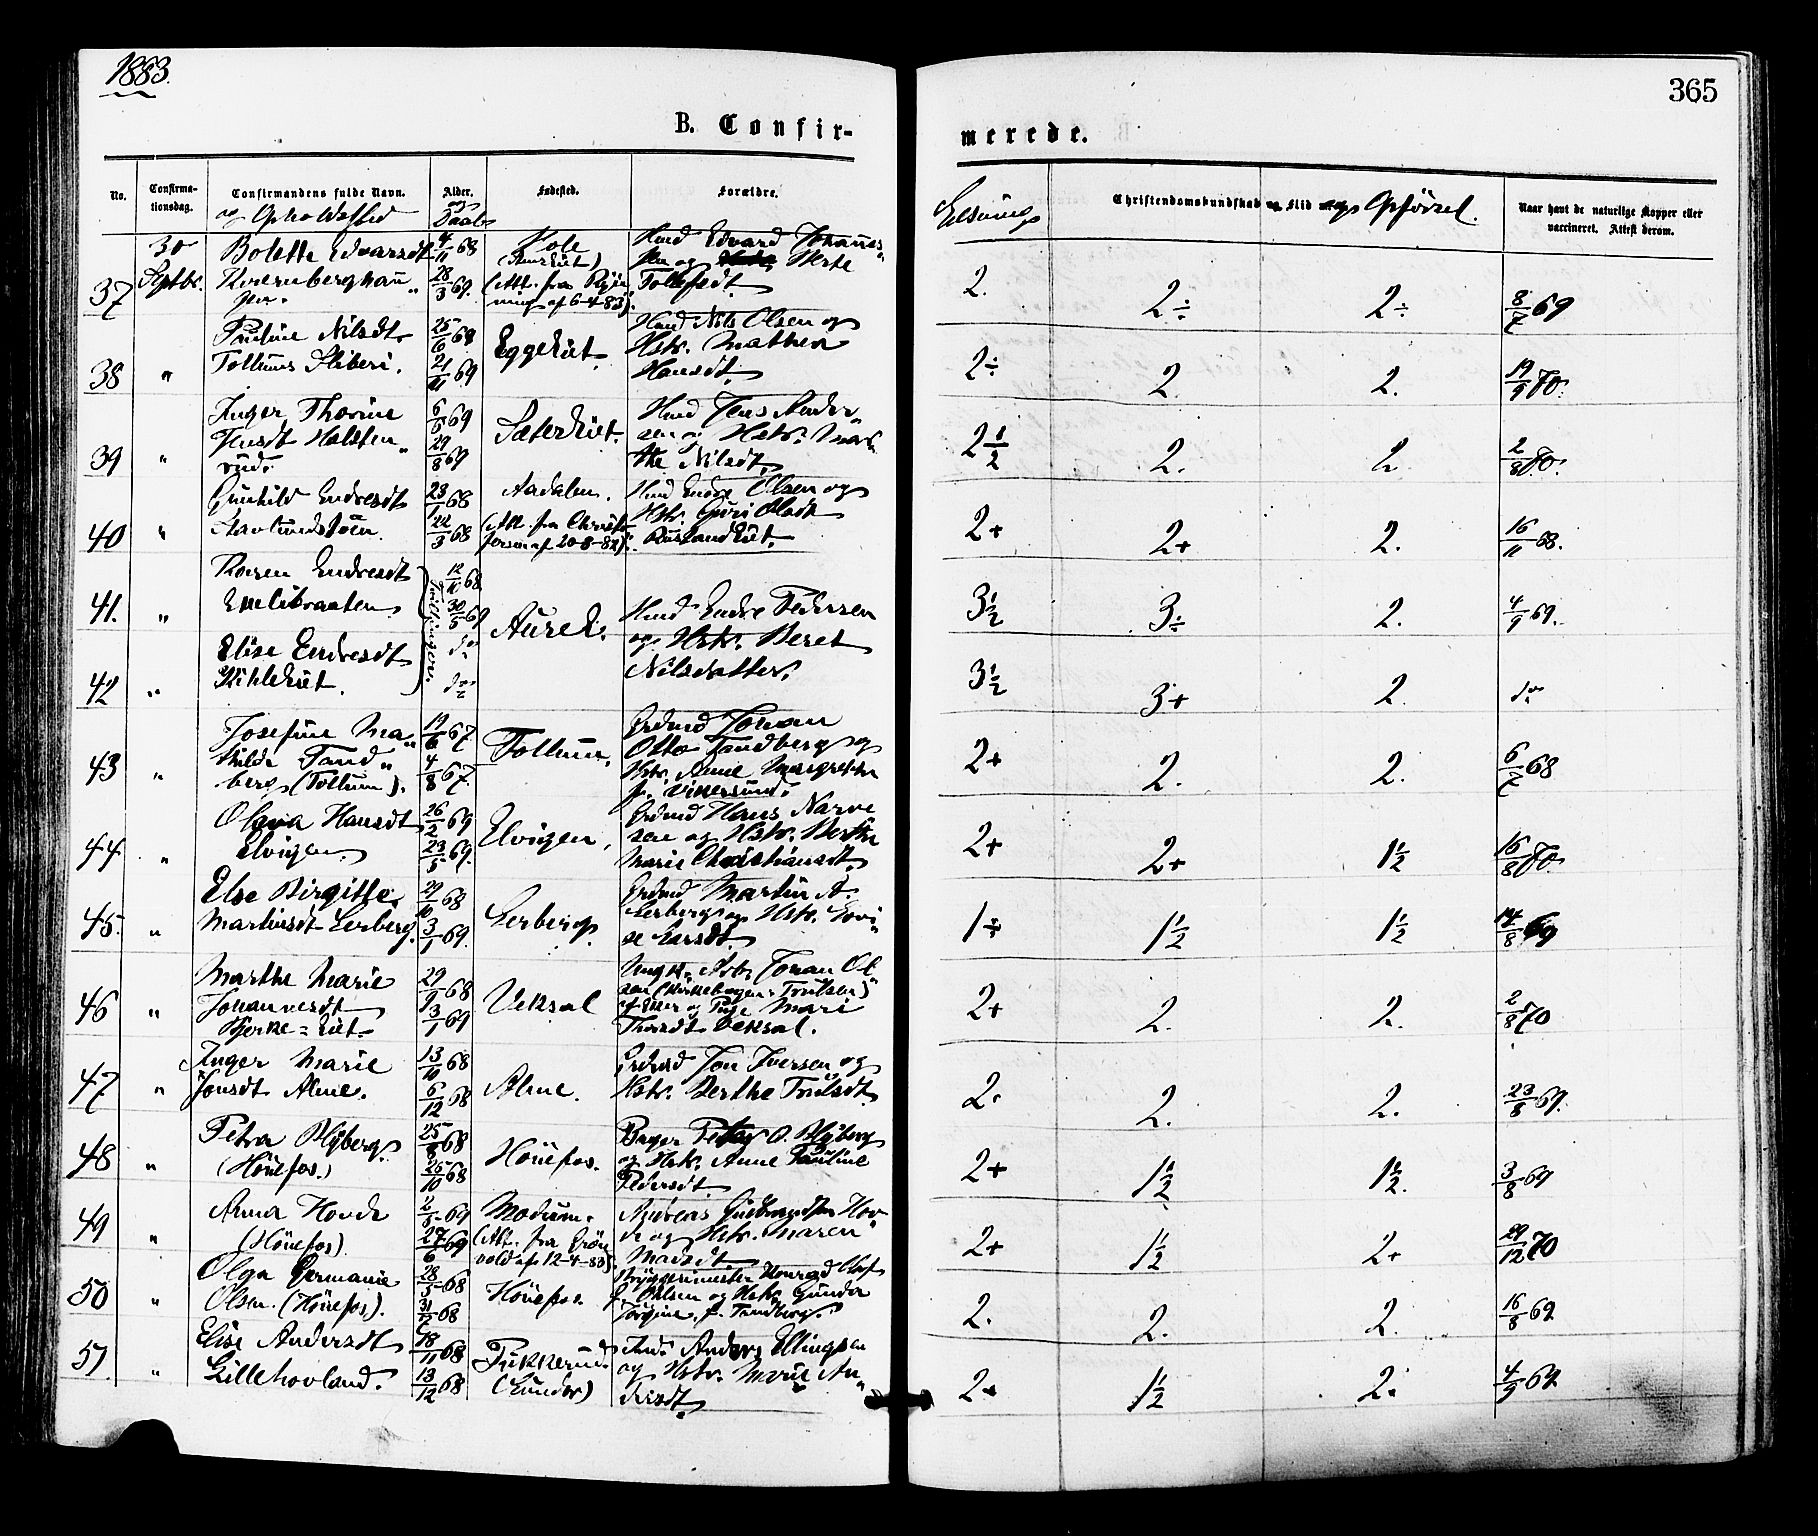 1883.
365
B. Confir-
merede.
No.
Confirma-
tionsdag.
Confirmandens fulde Navn.
og Opholdssted
Alder.
og
Daab
Fødested.
Forældre.
Læsning
Christendomskundskab og Flid
og Opførsel.
Naar havt de naturlige Kopper eller
vaccineret. Attest derom.
37
30
Septbr.
Bolette Edvardsdt
4/11 68
28/3 69.
Hole
(Att. fra
af 6-4-83)
Husmd Edvard Johannes-
sen og Berte
Tollefsdt.
2.
2÷
2÷
8/7 69
38
"
Pauline Nilsdt.
25/6 68
21/11 69
Eggeeiet.
Husmd Nils Olsen og
Hstr. Mathea
Hansdt.
2÷
2.
2.
19/9 70.
39
"
Inger Thorine
Jensdt Halsten-
rud.
6/5 69
29/8 69
Sætereiet.
Husmd Jens Ander-
sen og Hstr. Mar-
the Nilsdt.
2 1/2
2.
2
2/8 70.
40
"
Gunhild Endresdt
23/1 68
22/3 68
Aadalen.
(Att. fra Christi-
af 20-8-82).
Husmd Endre Olsen og
Hstr. Guri Olsdt
2+
2+
2.
16/11 68.
41.
"
Karen Endresdt
Tvillinger.
12/10 68
30/5 69
Aurek.
Husmd Endre Pedersen
og Hstr. Beret
Nilsdatter.
3 1/2
3÷
2.
4/9 69.
42
"
Elise Endresdt
do
do
3 1/2
3+
2
do
43
"
Josefine Ma-
thilde Tand-
berg (Follum).
19/6 67
4/8 67.
Follum.
Grdmd Johan
Otto Tandberg og
Hstr. Anne Margrethe
f. Vikersund.
2+
2.
2.
6/7 68
44
"
Olava Hansdt
Elvigen
26/2 69
23/5 69.
Elvigen,
Grdmd Hans Narve-
sen og Hstr. Berthe
Marie Christiansdt.
2+
2+
1 1/2
16/8 70.
45.
"
Else Birgitte
Martinsdt Lerberg.
29/10 68
3/1 69.
Lerberg.
Grdmd Martin A.
Lerberg og Hstr. Lovi-
se Larsdt.
1÷
1 1/2
1 1/2
14/8 69
46
"
Marthe Marie
Johannesdt
Bjerke=eiet.
29/9 68
3/1 69
Veksal
Ungk. Arb. Johan Ol-
sen (Kirkebogen: Trulsen)
af og Pige Mari
Thorsdt Veksal.
2+
2.
2.
2/8 70
47
"
Inger Marie
Jonsdt Alme.
13/10 68
6/12 68
Alme.
Grdmd Jon Iversen og
Hstr. Berthe Trulsdt.
2.
2.
2.
23/8 69.
48
"
Petra Myberg
(Hønefos.)
25/8 68
25/10 68
Hønefos.
Bager Peter O. Myberg
og Hstr. Anne Pauline
Pedersdt.
2+
1 1/2
1 1/2.
3/8 69
49
"
Anna Hovde
(Hønefos)
2/5 69
27/6 69
Modum.
(Att. fra Grøn-
vold af 12-4-83).
Andreas Gudbrandsen Hov-
de og Hstr. Maren
Madsdt.
2+
1 1/2
2+
29/12 70
50
"
Olga Germanie
Olsen. (Hønefos).
28/5 68
31/ 68
Hønefos.
Bryggerimester Konrad Olaf
J. Ohlsen og Hstr. Gunda
Jørgine, f. Tandberg.
2.
2.
2.
16/8 69
51.
"
Elise Andersdt
Lillehovland.
18/11 68
13/12 68
Fekkerud
(Lunder)
Inds. Anders Ellingsen
og Hstr. Marie An-
dersdt.
2+
1 1/2
2.
4/9 69